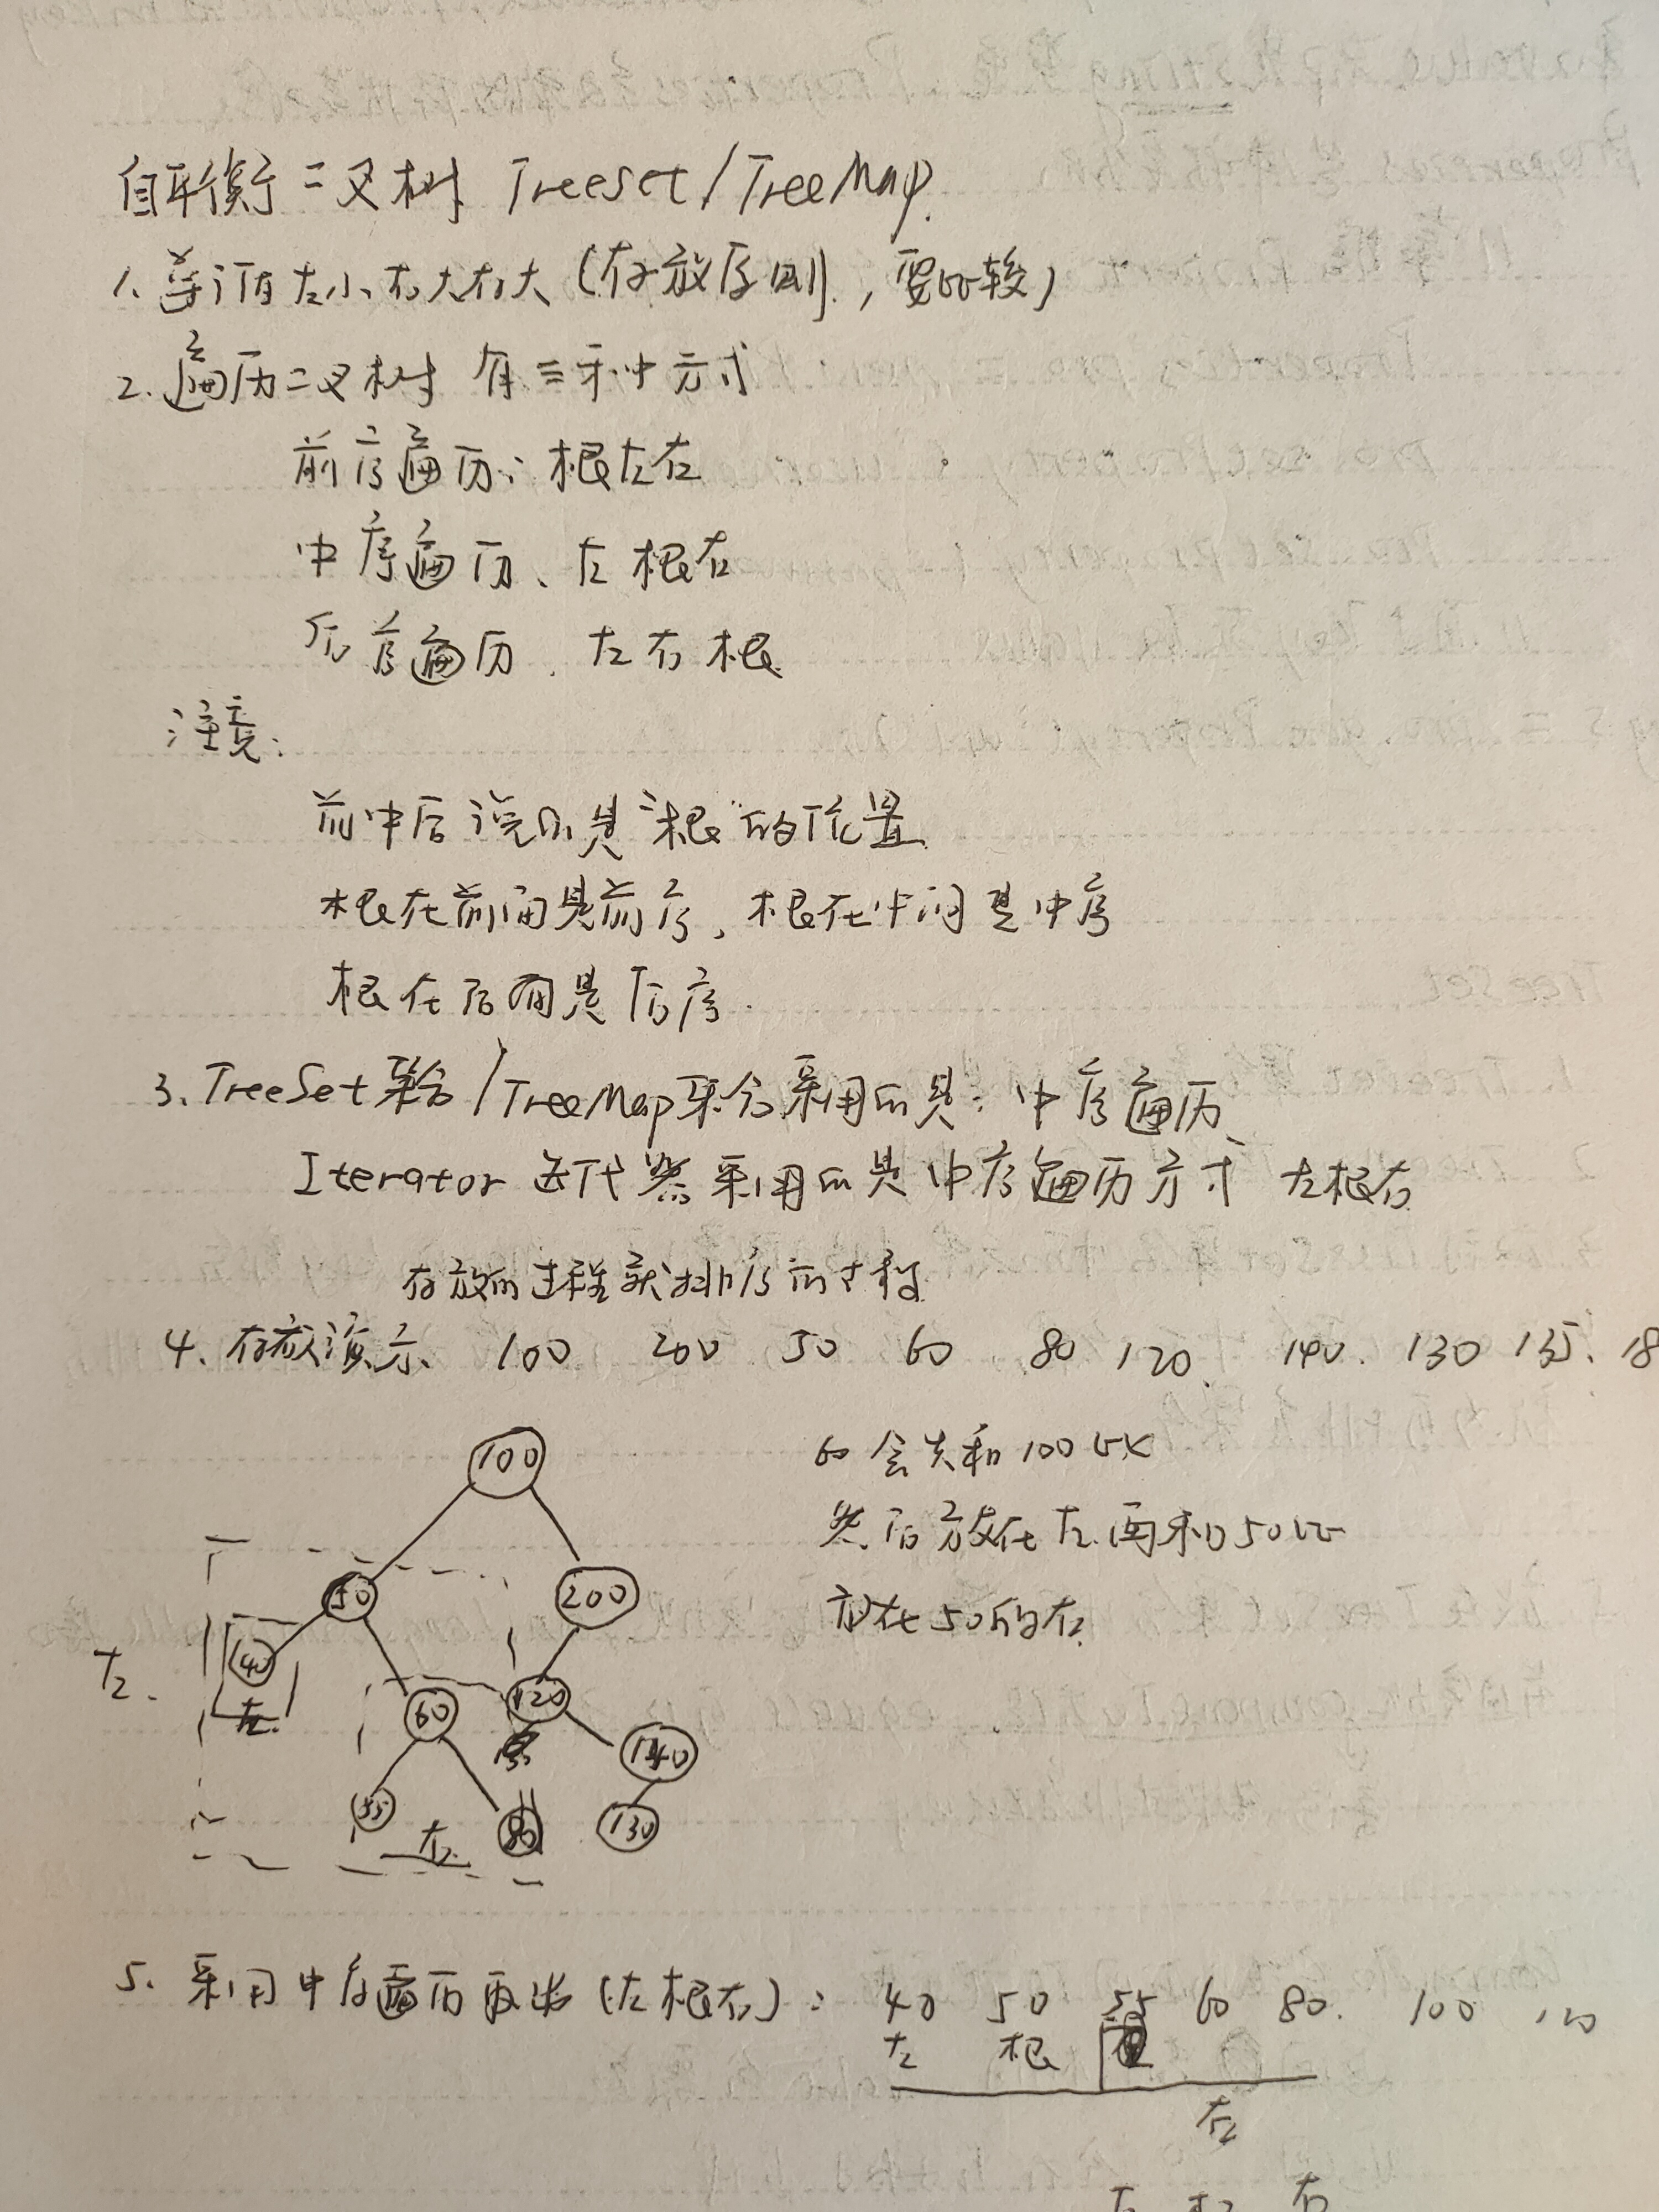 自平衡二叉树 Treeset/TreeMap.
1. 遵循左小右大右大(存放原则,要比较)
2. 遍历二叉树 有三种方式
前序遍历: 根左右
中序遍历、左根右
后序遍历. 左右根
注意:
前中后说的是"根"的位置
根在前面是前序, 根在中间是中序
根在后面是后序.
3. TreeSet集合/TreeMap集合采用的是: 中序遍历、
Iterator 迭代器采用的是中序遍历方式 左根右
存放的过程就排序的过程
4. 存放演示 100 200 50 60 80 120 140. 130 135. 18
100
60会先和100比
然后放在左再和50比
放在50的右
50 200
左. 40 左.
60 120 140
55 左 80 130
5. 采用中序遍历取出(左根右): 40 50 55 60 80. 100 120
左 根
右
左 根 右